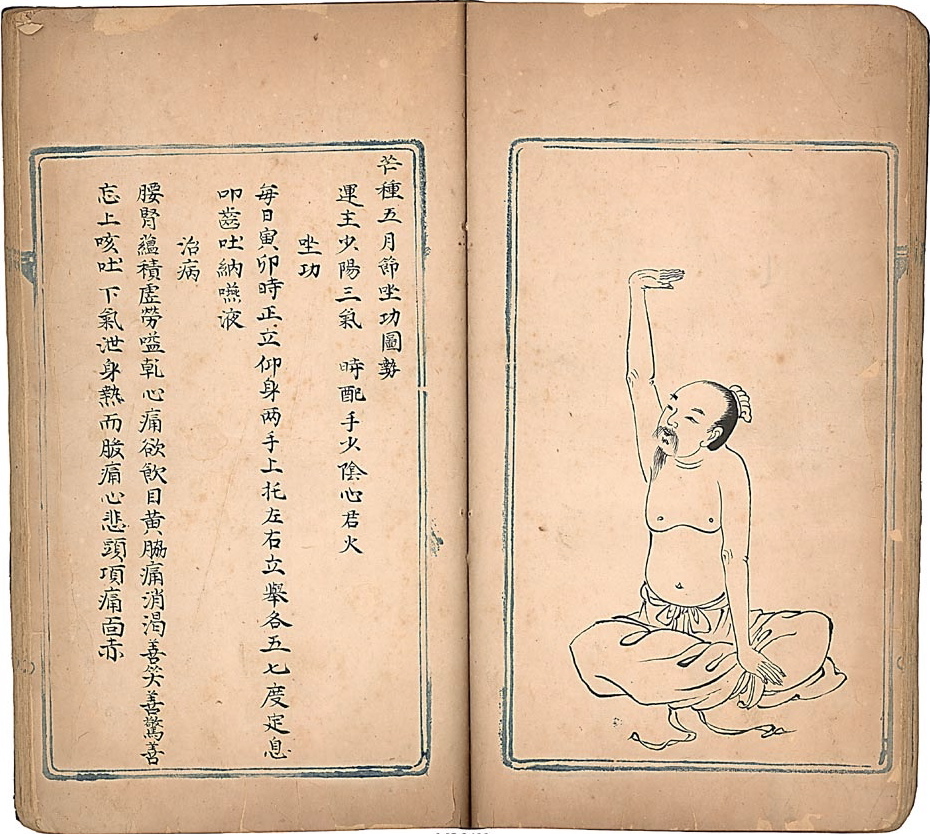 芒種五月節坐功圖勢
運主少陽三氣　時配手少陰心君火
坐功
每日寅卯時正立仰身两手上托左右立舉各五七度定息
叩齒吐納嚥液
治病
腰腎蘊積虛勞嗌乹心痛欲飲目黄脇痛消渴善笑善驚善
忘上咳吐下氣泄身熱而股痛心悲頭項痛面赤